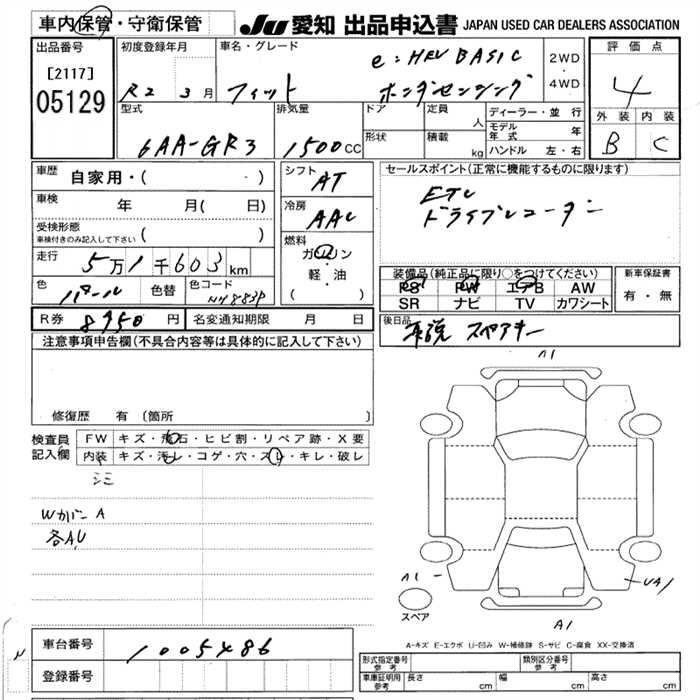 車内保管・守衛保管
JU 愛知 出品申込書 JAPAN USED CAR DEALERS ASSOCIATION
出品番号
[2117]
05129
初度登録年月
R2 3月
車名・グレード
e:HEV BASIC
フィット ホンダセンシング
2WD
・
4WD
評価点
4
外装 内装
B C
型式
6AA-GR3
排気量
1500cc
ドア
形状
定員 人
積載 kg
ディーラー・並行
モデル年式 年
ハンドル 左・右
車歴 自家用・( ・ )
車検 年 月( 日)
受検形態
車検付きのみ記入して下さい ( )
走行 5万1千603km
色 パール 色替
色コード NH883P
シフト AT
冷房 AAC
燃料
ガソリン
・
軽・油
( )
セールスポイント(正常に機能するものに限り)
ETC
ドライブレコーダー
装備品(純正品に限り○をつけてください)
PS PW エアB AW
SR ナビ TV カワシート
新車保証書
有・無
R券 8950円 名変通知期限 月 日
後日品
取説 スペアキー
注意事項申告欄(不具合内容等は具体的に記入して下さい)
修復歴 有(箇所 )
検査員記入欄
FW キズ・飛石・ヒビ割・リペア跡・X要
内装 キズ・汚レ・コゲ・穴・スレ・キレ・破レ
シミ
Wカバー A
各A,U
A1
A1
UA1
A1
スペア
A-キズ E-エクボ U-凹み W-補修跡 S-サビ C-腐食 XX-交換済
車台番号 1005486
登録番号
形式指定番号 参考
類別区分番号 参考
車庫証明用 参考 長さ cm 幅 cm 高さ cm